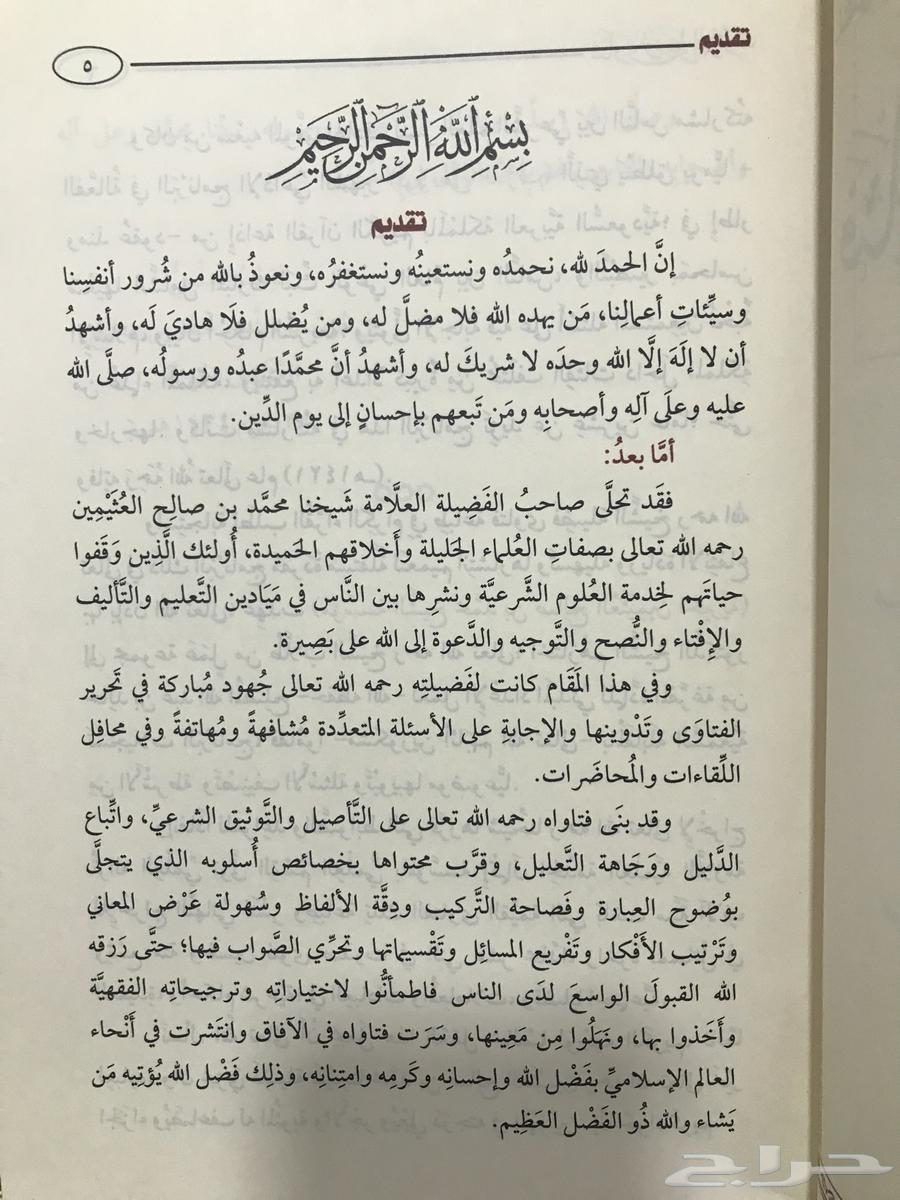 تقديم
٥
بِسْمِ اللَّهِ الرَّحْمَنِ الرَّحِيمِ
تقديم
إنَّ الحمدَ لله، نحمدُه ونستعينُه ونستغفرُه، ونعوذُ بالله من شُرور أنفسِنا
وسيِّئاتِ أعمالِنا، مَن يهده الله فلا مضلَّ له، ومن يُضلل فلَا هاديَ لَه، وأشهدُ
أن لا إلَهَ إلَّا الله وحدَه لا شريكَ له، وأشهدُ أنَّ محمَّدًا عبدُه ورسولُه، صلَّى الله
عليه وعلَى آلِه وأصحابِه ومَن تَبعهم بإحسانٍ إلى يوم الدِّين.
أمَّا بعدُ:
فقَد تحلَّى صاحبُ الفَضِيلة العلَّامة شَيخنا محمَّد بن صالحِ العُثَيْمِين
رحمه الله تعالى بصفاتِ العُلماء الجَليلة وأَخلاقهم الحَميدة، أُولئك الَّذِين وَقَفوا
حياتَهم لخِدمة العُلوم الشَّرعيَّة ونشرِها بين النَّاس في مَيَادين التَّعليم والتَّأليف
والإِفْتاء والنُّصح والتَّوجيه والدَّعوة إلى الله على بَصِيرة.
وفي هذا المَقَام كانت لفَضيلتِه رحمه الله تعالى جُهود مُباركة في تَحرير
الفتاوَى وتَدْوينها والإجابةِ على الأسئلة المتعدِّدة مُشافهةً ومُهاتفةً وفي محافِل
اللِّقاءات والمُحاضَرات.
وقد بنَى فتاواه رحمه الله تعالى على التَّأصيل والتَّوثيق الشرعيِّ، واتِّباع
الدَّليل ووَجَاهة التَّعليل، وقرَّب محتواها بخصائص أُسلوبه الذي يتجلَّى
بوُضوح العِبارة وفَصاحة التَّركيب ودِقَّة الألفاظ وسُهولة عَرْض المعاني
وتَرْتيب الأَفْكار وتَفْريع المسائِل وتَقْسيماتها وتحرِّي الصَّواب فيها؛ حتَّى رَزقه
الله القبولَ الواسعَ لدَى الناس فاطمأنُّوا لاختياراتِه وترجيحاتِه الفقهيَّة
وأَخَذوا بها، ونَهَلُوا مِن مَعِينها، وسَرَت فتاواه في الآفاق وانتَشرت في أَنْحاء
العالم الإسلاميِّ بفَضْل الله وإحسانِه وكَرمِه وامتِنانِه، وذلِك فَضْل الله يُؤتِيه مَن
يَشاء والله ذُو الفَضْل العَظِيم.
حراج